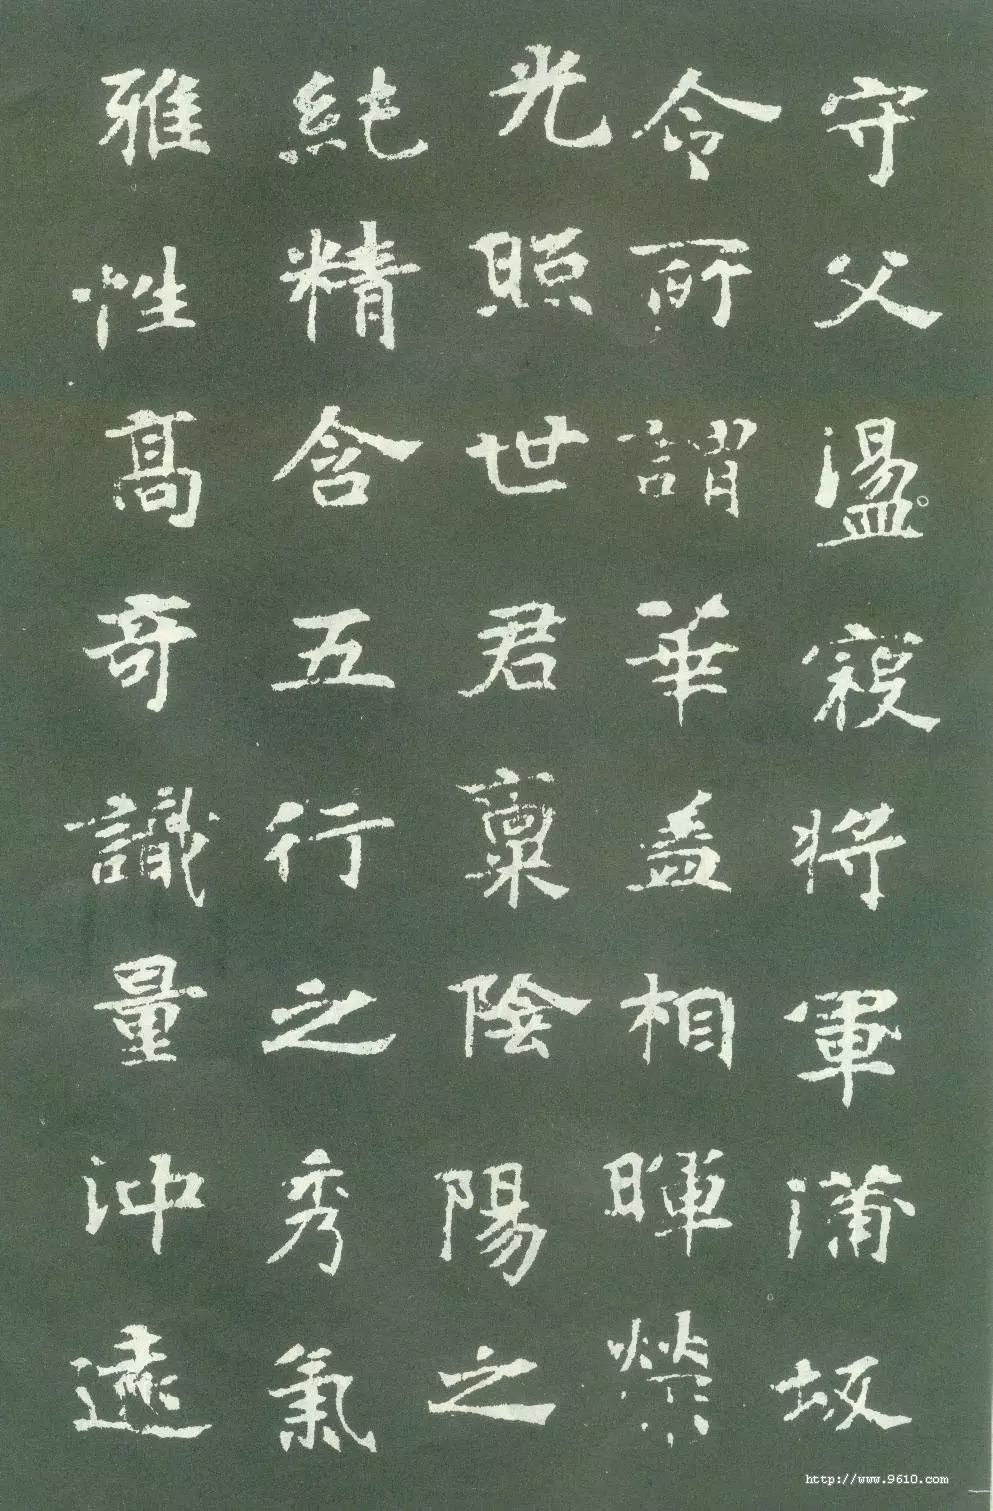 守父盪寇將軍蒲坂
令所謂華蓋相暉榮
光照世君稟陰陽之
純精含五行之秀氣
雅性高奇識量沖遠
http://www.9610.com